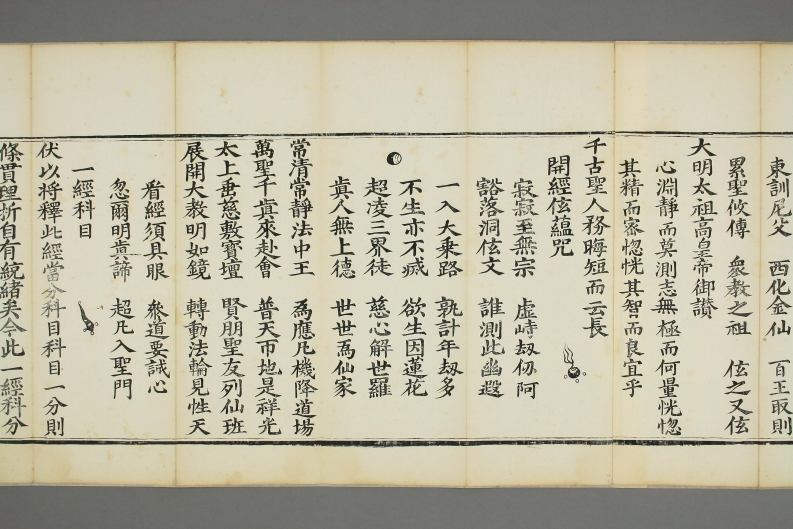 東訓尼父 西化金仙 百王取則
累聖攸傳 衆教之祖 伭之又伭
大明太祖高皇帝御讃
心淵靜而莫測志無極而何量恍惚
其精而密惚恍其智而良宜乎
千古聖人務晦短而云長
開經伭蘊咒
寂寂至無宗 虛峙刼仞阿
豁落洞伭文 誰測此幽遐
一入大乗路 孰計年刼多
不生亦不滅 欲生因蓮花
超凌三界徒 慈心解世羅
眞人無上德 世世爲仙家
常清常靜法中王 爲應凡機降道場
萬聖千眞來赴會 普天帀地是祥光
太上垂慈敷寳壇 賢朋聖友列仙班
展開大教明如鏡 轉動法輪見性天
看經須具眼 叅道要誠心
忽爾明眞諦 超凡入聖門
一經科目
伏以將釋此經當分科目科目一分則
條貫理折自有統緒矣今此一經科分